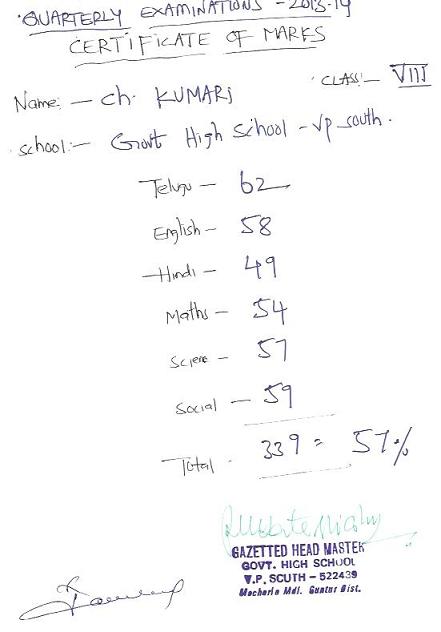 QUARTERLY EXAMINATIONS - 2013-14
CERTIFICATE OF MARKS
CLASS:- VIII
Name:- Ch. KUMARI
School:- Govt High School - VP south.
Telugu - 62
English - 58
Hindi - 49
Maths - 54
Science - 57
Social - 59
Total - 339 = 57%
GAZETTED HEAD MASTER
GOVT. HIGH SCHOOL
V.P. SOUTH - 522439
Macherla Mdl. Guntur Dist.